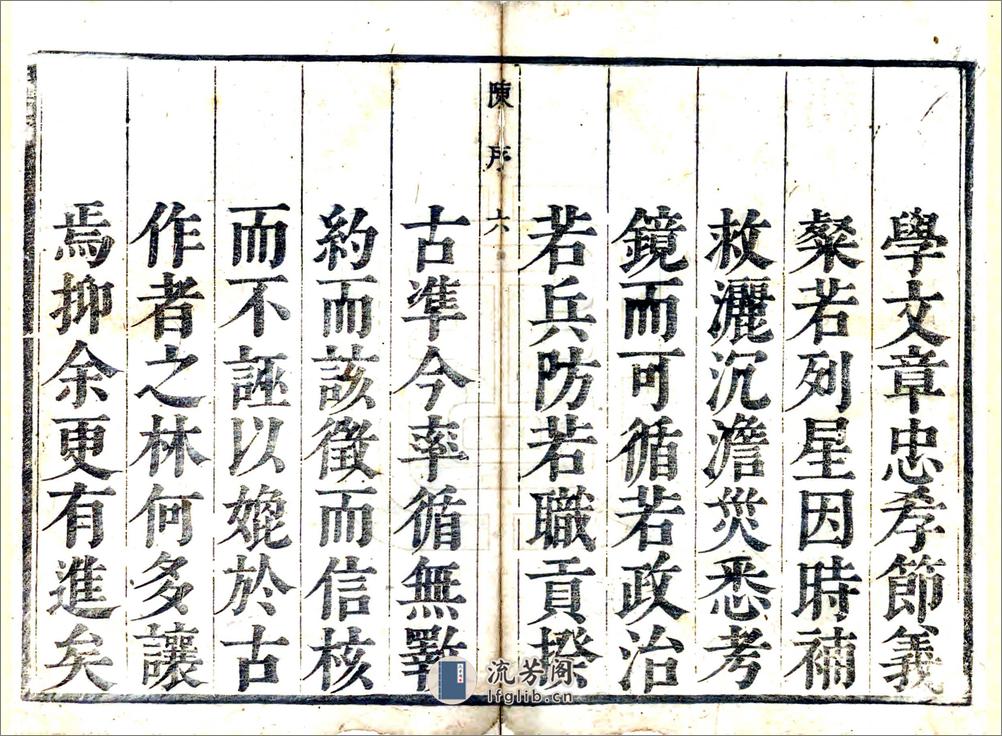 學文章忠孝節義
粲若列星因時補
救灑沉澹災悉考
鏡而可循若政治
若兵防若職貢揆
陳序 六
古準今率循無斁
約而該徵而信核
而不誣以娩於古
作者之林何多讓
焉抑余更有進矣
流芳阁
lfglib.cn